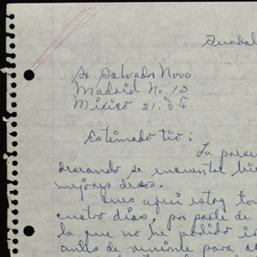 Guadal
Sr. Salvador Novo.
Madrid No. 13
México 21. D.F.
Estimado tio:
La prese
deseando se encuentre bie
mejores deseos.
Pues aqui estoy tou
cuatro dias, por parte de
la que no he podido ir
antes de venirme para a